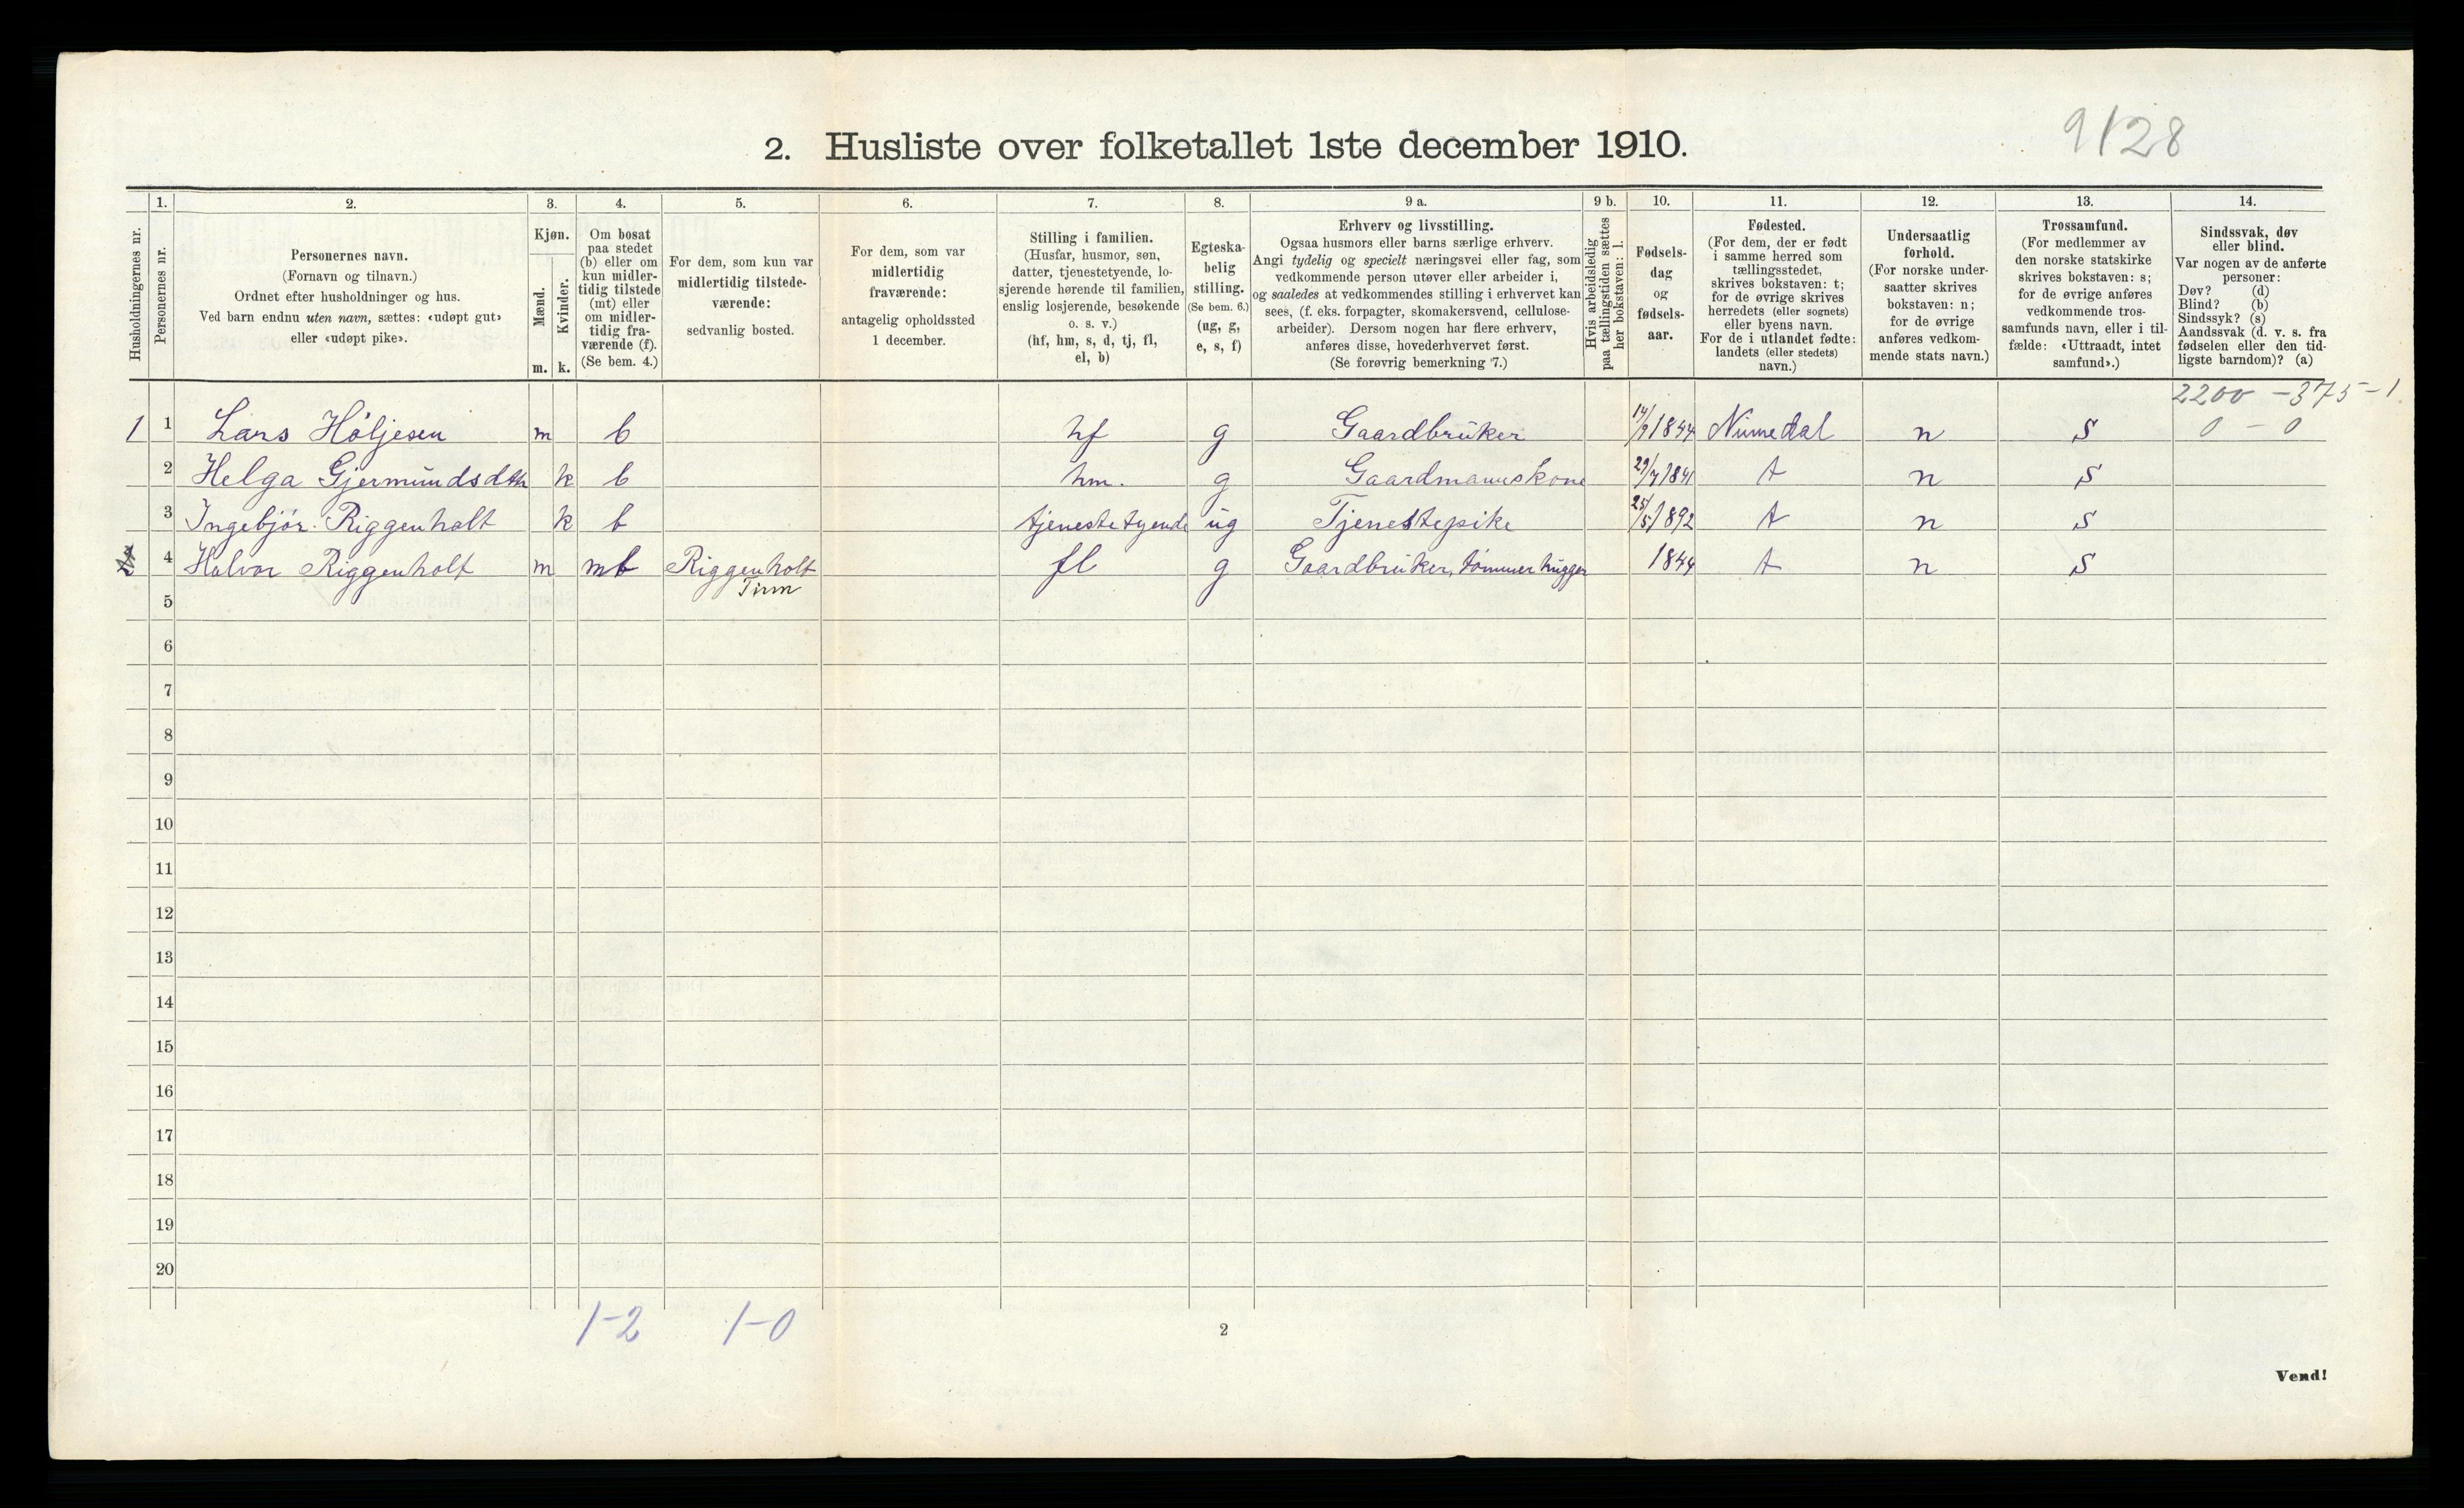 9/128
2. Husliste over folketallet 1ste december 1910.
Husholdningernes nr.
1.
Personernes nr.
2.
Personernes navn.
(Fornavn og tilnavn.)
Ordnet efter husholdninger og hus.
Ved barn endnu uten navn, sættes: «udøpt gut»
eller «udøpt pike».
3.
Kjøn.
Mænd.
Kvinder.
m. k.
4.
Om bosat
paa stedet
(b) eller om
kun midler-
tidig tilstede
(mt) eller
om midler-
tidig fra-
værende (f).
(Se bem. 4.)
5.
For dem, som kun var
midlertidig tilstede-
værende:
sedvanlig bosted.
6.
For dem, som var
midlertidig
fraværende:
antagelig opholdssted
1 december.
7.
Stilling i familien.
(Husfar, husmor, søn,
datter, tjenestetyende, lo-
sjerende hørende til familien,
enslig losjerende, besøkende
o. s. v.)
(hf, hm, s, d, tj, fl,
el, b)
8.
Egteska-
belig
stilling.
(Se bem. 6.)
(ug, g,
e, s, f)
9 a.
Erhverv og livsstilling.
Ogsaa husmors eller barns særlige erhverv.
Angi tydelig og specielt næringsvei eller fag, som
vedkommende person utøver eller arbeider i,
og saaledes at vedkommendes stilling i erhvervet kan
sees, (f. eks. forpagter, skomakersvend, cellulose-
arbeider). Dersom nogen har flere erhverv,
anføres disse, hovederhvervet først.
(Se forøvrig bemerkning 7.)
9 b.
Hvis arbeidsledig
paa tællingstiden sættes
her bokstaven: l.
10.
Fødsels-
dag
og
fødsels-
aar.
11.
Fødested.
(For dem, der er født
i samme herred som
tællingsstedet,
skrives bokstaven: t;
for de øvrige skrives
herredets (eller sognets)
eller byens navn.
For de i utlandet fødte:
landets (eller stedets)
navn.)
12.
Undersaatlig
forhold.
(For norske under-
saatter skrives
bokstaven: n;
for de øvrige
anføres vedkom-
mende stats navn.)
13.
Trossamfund.
(For medlemmer av
den norske statskirke
skrives bokstaven: s;
for de øvrige anføres
vedkommende tros-
samfunds navn, eller i til-
fælde: «Uttraadt, intet
samfund».)
14.
Sindssvak, døv
eller blind.
Var nogen av de anførte
personer:
Døv? (d)
Blind? (b)
Sindssyk? (s)
Aandssvak (d. v. s. fra
fødselen eller den tid-
ligste barndom)? (a)
2200 - 375 - 1
1 1 Lars Høljesen m b hf g Gaardbruker 14/9 1844 Numedal n s 0 - 0
2 Helga Gjermundsdth k b hm. g Gaardmannskone 29/7 1841 t n s
3 Ingebjør. Riggenholt k b tjenestetyende ug Tjenestepike 25/5 1892 t n s
4 Halvor Riggenholt m mt Riggenholt fl g Gaardbruker, tømmerhugger 1844 t n s
Tinn
5
6
7
8
9
10
11
12
13
14
15
16
17
18
19
20
1-2 1-0
2
Vend!